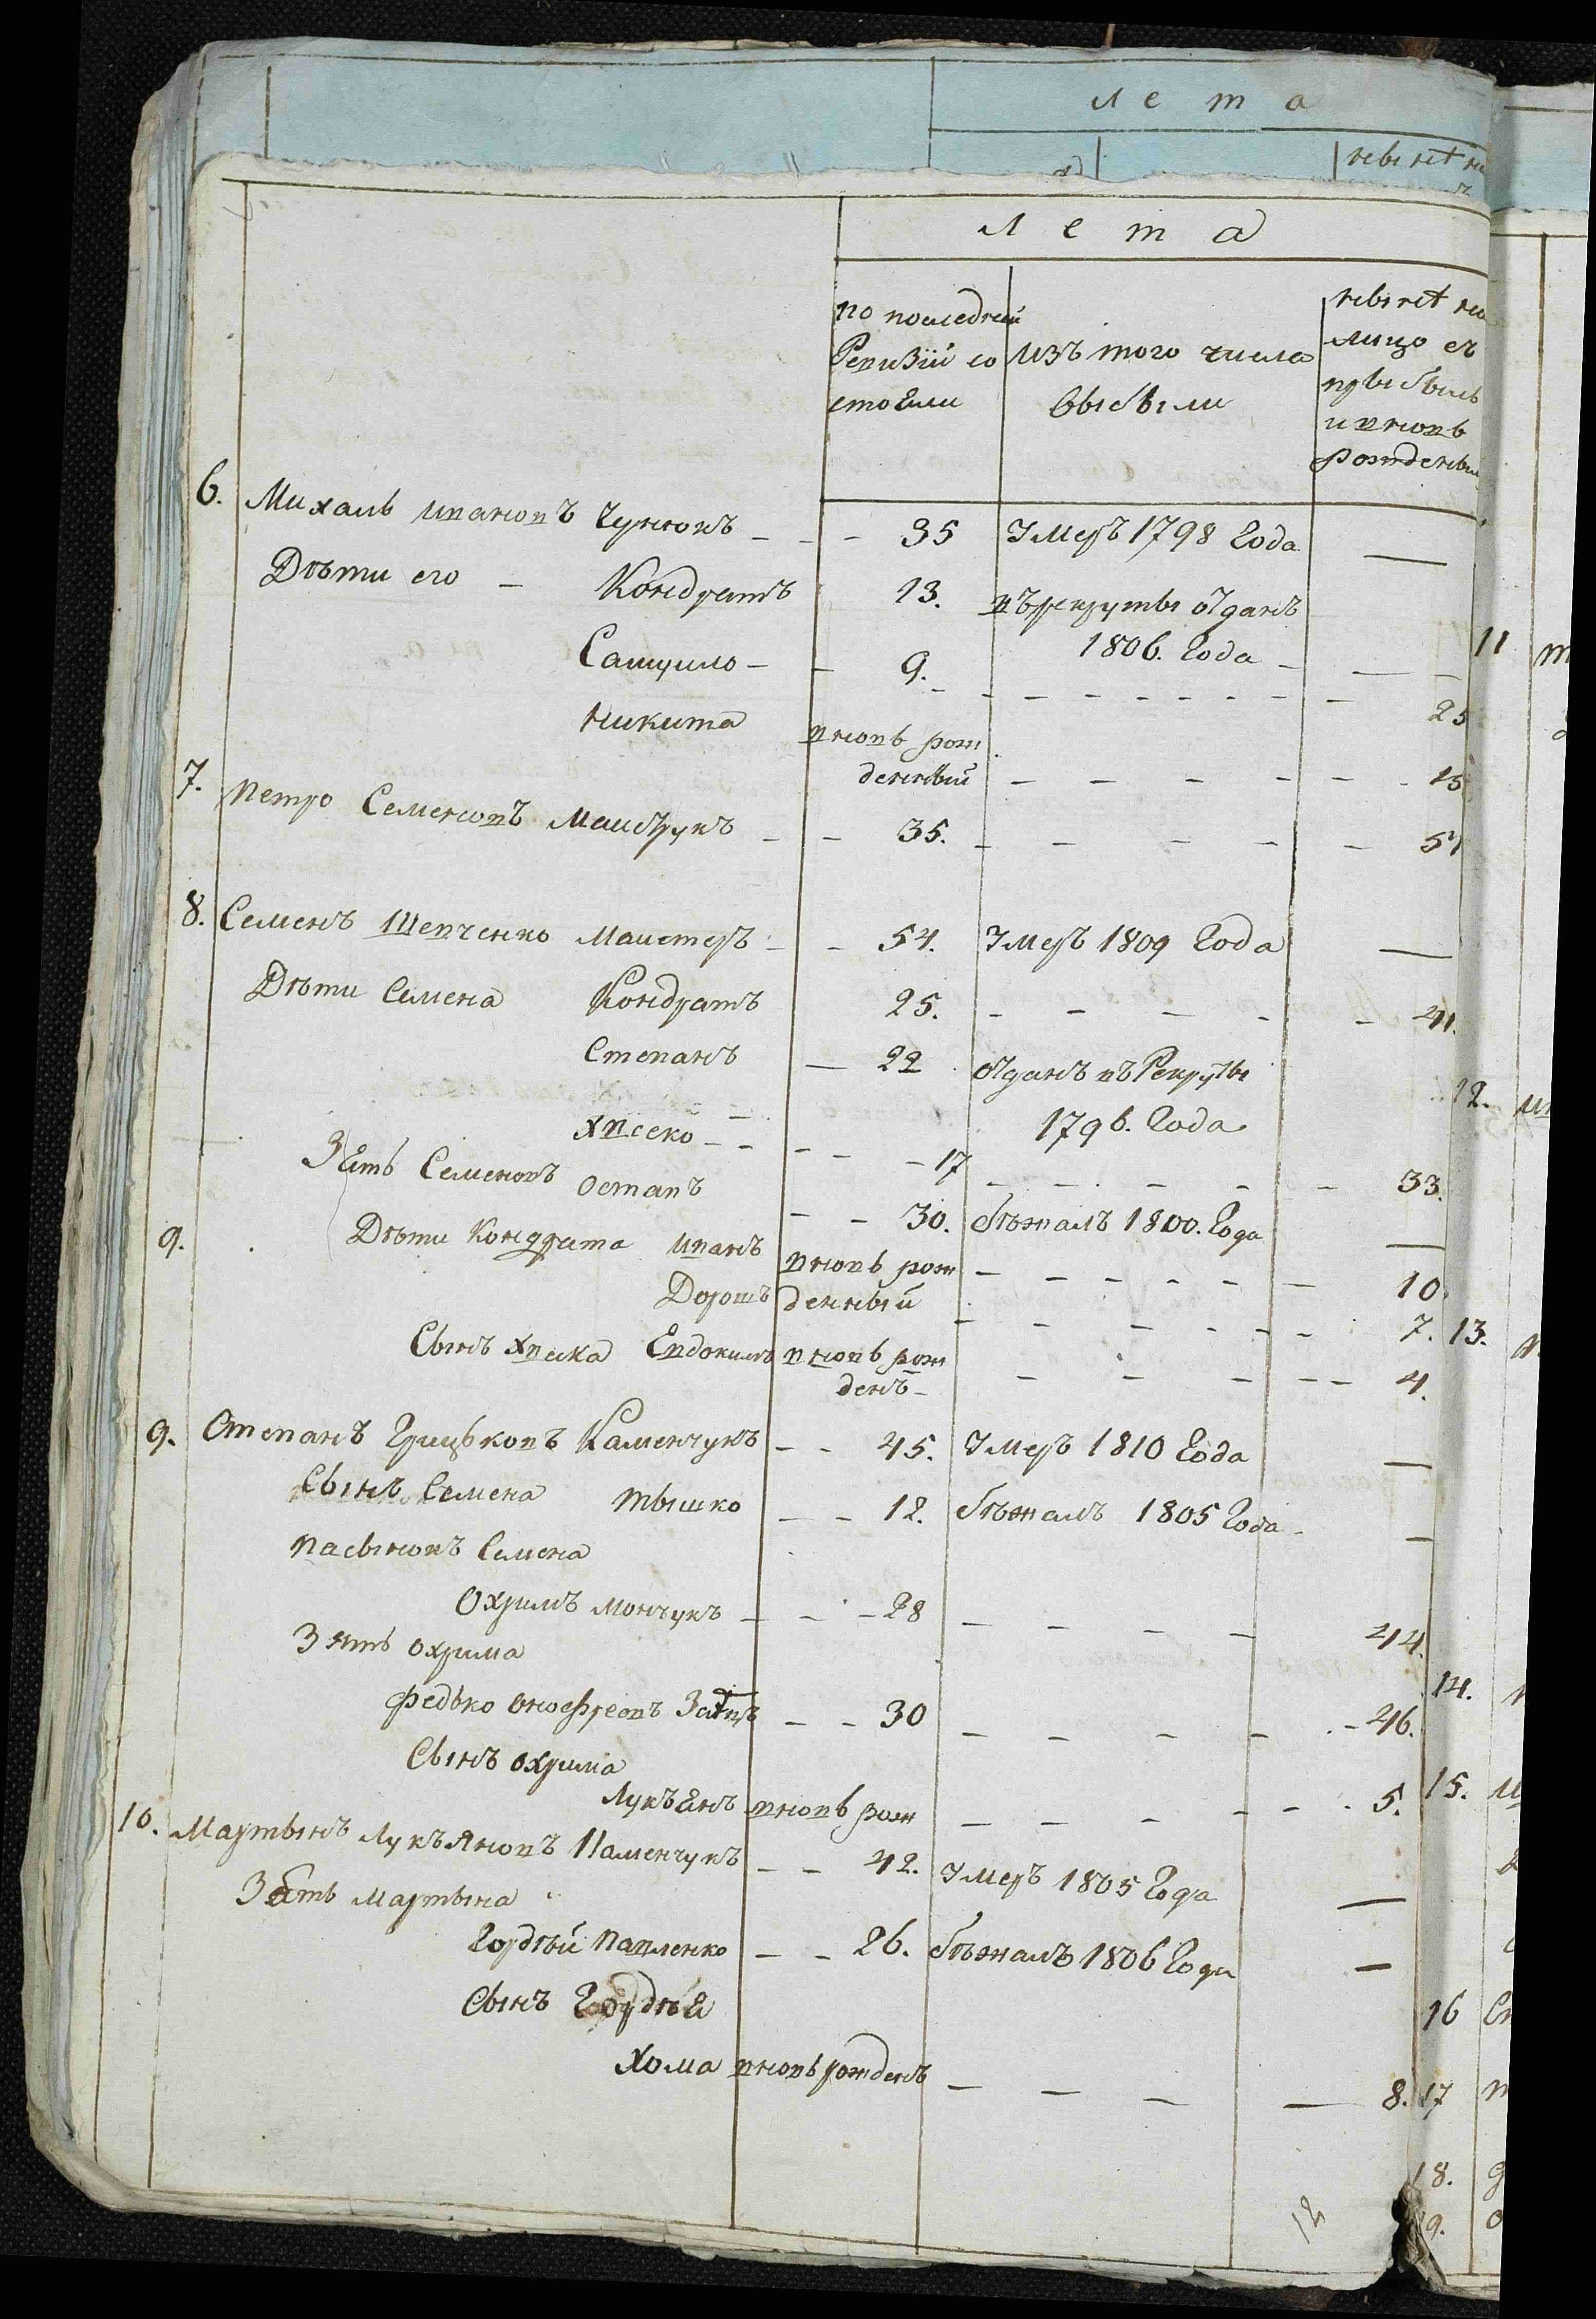 Лета
ныне на
Лета
по последней Ревизiи состояли
изъ того числа выбыли
ныне на лицо съ прыбыль и вновь рожденны
6. Михаль Ивановъ Чунюкъ - - - 35 Умеръ 1798 Года —
Дѣти его - Кондратъ 13. въ рекруты отданъ 1806. Года - —
Самуило - - 9. - - - - - - - - 25
Никита вновь рожденный - - - - - - 15
7. Петро Семеновъ Маиструкъ - - 35. - - - - - 51
8. Семенъ Шевченко Маистеръ - - 54. Умеръ 1809 Года —
Дѣти Семена Кондратъ 25. - - - - - 41.
Степанъ — 22 отданъ въ Рекруты 1796. Года
Хвсеко - - - - - 17 - - - - - 33.
Зять Семеновъ Остапъ - - 30. бѣжалъ 1800. Года —
9. Дѣти Кондрата Иванъ вновь рожденный - - - - - - - 10.
Дорошъ - - - - - - - 7.
Сынъ Хвська Евдокимъ вновь рожденъ - - - - - - 4.
9. Степанъ Грицьковъ Каменчукъ - - 45. Умеръ 1810 Года —
Сынъ Семена Тышко - - 12. бѣжалъ 1805 Года - —
Пасыновъ Семена
Охримъ Мончукъ - - - 28 - - - - 44.
Зять Охрима
Федько Онофреовъ - - 30 - - - - - 46.
Сынъ Охрима
Лукъянъ вновь рож - - - - - 5.
10. Мартынъ Лукъяновъ Каменчукъ - - 42. Умеръ 1805 Года —
Зять Мартына
Гордѣй Павленко - - 26. бѣжалъ 1806 Года —
Сынъ Гордѣя
Хома вновь рожденъ - - - — 8.
12
11
12.
13.
14.
15.
16
17
18.
19.